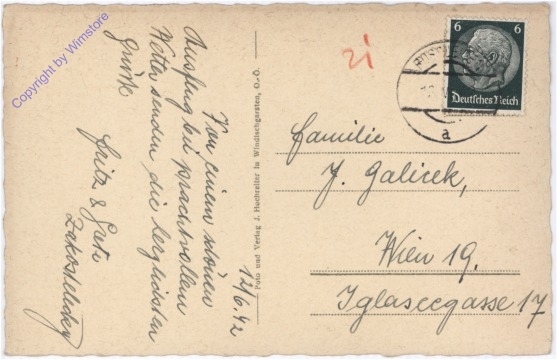 Copyright by Wimstore
12/6.42
Von einem schönen
Ausflug bei prachtvollem
Wetter senden die herzlichsten
Grüße
Fritz & Greti
Foto und Verlag J. Hochreiter in Windischgarsten, O.-Ö.
21
6 6
Deutsches Reich
a
Familie
J. Galicek,
Wien 19.
Iglaseegasse 17